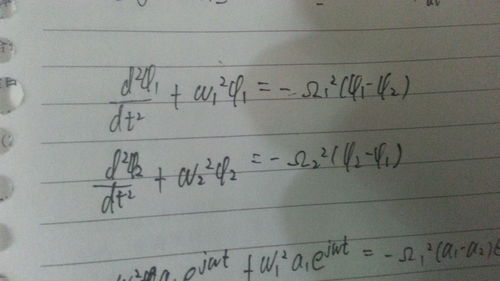 d²φ₁/dt² + ω₁²φ₁ = - Ω₁²(φ₁-φ₂)
d²φ₂/dt² + ω₂²φ₂ = - Ω₂²(φ₂-φ₁)
a₁e^{jωt} + ω₁²a₁e^{jωt} = - Ω₁²(a₁-a₂)